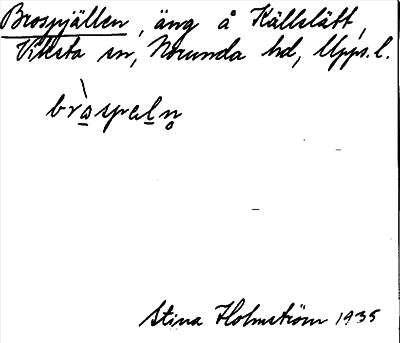 Brospjällen, äng å Källslätt,
Viksta sn, Norunda hd, Upps. l.
bràspeln̥
Stina Holmström 1935